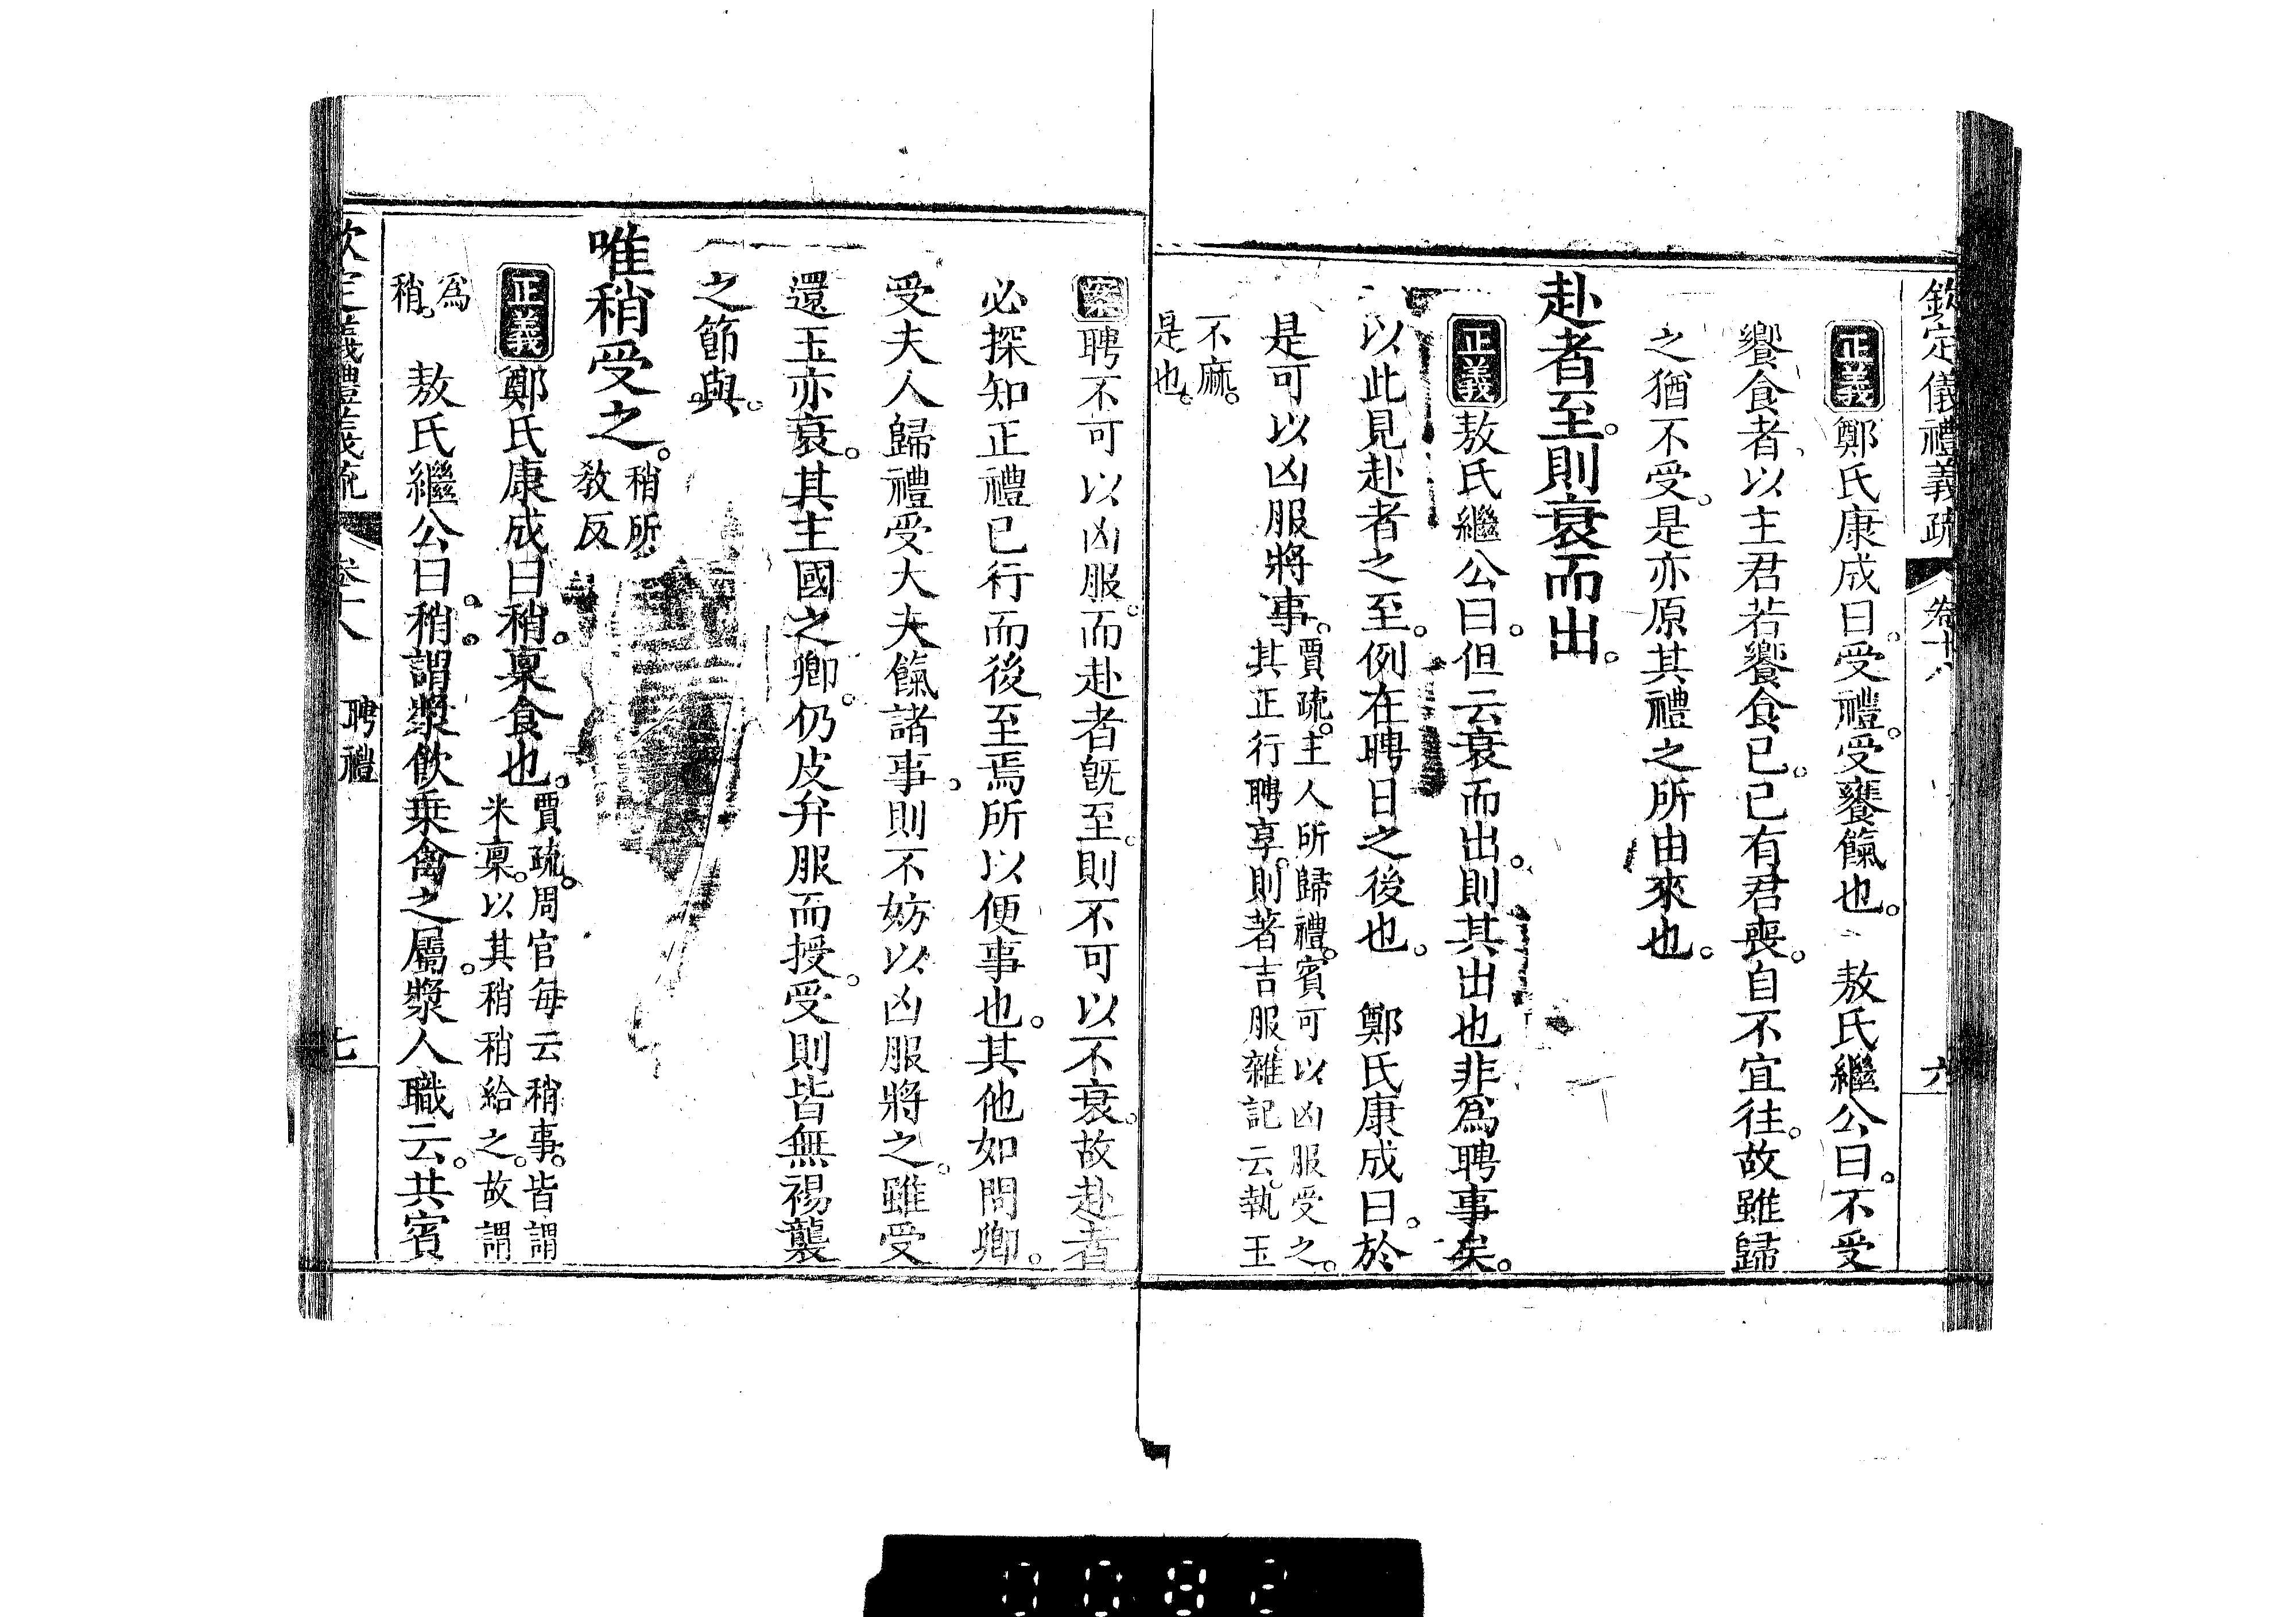 欽定儀禮義疏 卷十八 六
正義鄭氏康成曰。受禮。受饔餼也。 敖氏繼公曰。不受
饗食者、以主君若饗食已。已有君喪。自不宜往。故雖歸
之猶不受。是亦原其禮之所由來也。
赴者至。則衰而出。
正義敖氏繼公曰。但云衰而出。則其出也非爲聘事矣。
以此見赴者之至。例在聘日之後也。 鄭氏康成曰。於
是可以凶服將事。
賈疏。主人所歸禮。賓可以凶服受之。
其正行聘享。則著吉服。雜記云。執玉
不麻。
是也。
案聘不可以凶服。而赴者旣至。則不可以不衰。故赴者
必探知正禮已行而後至焉所以便事也。其他如問卿。
受夫人歸禮受大夫餼諸事。則不妨以凶服將之。雖受
還玉亦衰。其主國之卿。仍皮弁服而授。受則皆無裼襲
之節與。
唯稍受之。
稍所
敎反
正義鄭氏康成曰。稍。稟食也。
賈疏。周官每云稍事。皆謂
米稟。以其稍稍給之。故謂
爲
稍。
敖氏繼公曰。稍。謂漿飲乗禽之屬。漿人職云。共賓
欽定儀禮義疏 卷十八 聘禮 七